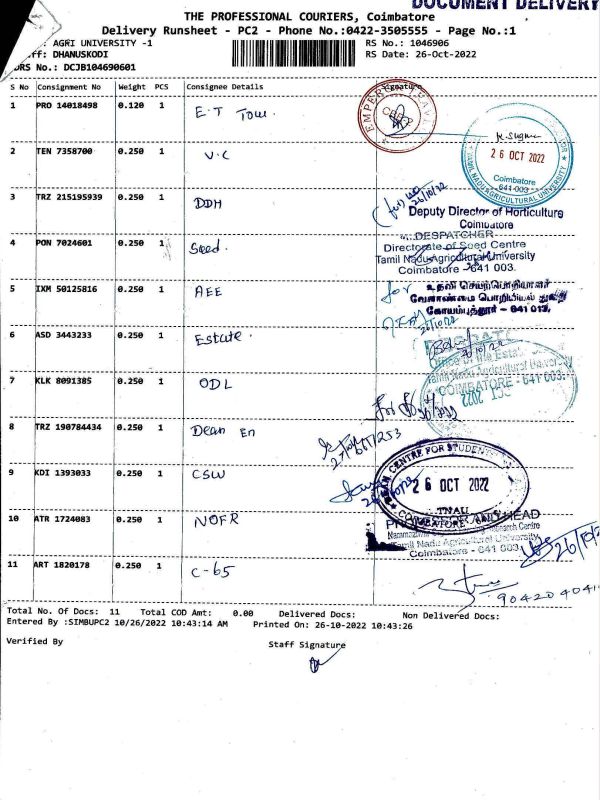 DOCUMENT DELIVERY
THE PROFESSIONAL COURIERS, Coimbatore
Delivery Runsheet - PC2 - Phone No.:0422-3505555 - Page No.:1
: AGRI UNIVERSITY -1
RS No.: 1046906
ff: DHANUSKODI
RS Date: 26-Oct-2022
DRS No.: DCJB104690601
S No Consignment No Weight PCS Consignee Details Signature
1 PRO 14018498 0.120 1 E.T Tow.
2 TEN 7358700 0.250 1 V.C
26 OCT 2022
Coimbatore
641-003
TAMIL NADU AGRICULTURAL UNIVERSITY
3 TRZ 215195939 0.250 1 DDH
26/10/22
Deputy Director of Horticulture
Coimbatore
4 PON 7024601 0.250 1 Seed.
DESPATCHER
Directorate of Seed Centre
Tamil Nadu Agricultural University
Coimbatore - 641 003.
5 IXM 50125816 0.250 1 AEE
for
உதவி செயற்பொறியாளர்
வேளாண்மை பொறியியல் துறை
கோயம்புத்தூர் – 641 013.
6 ASD 3443233 0.250 1 Estate.
Office of the Estate
Tamil Nadu Agricultural University
COIMBATORE - 641 003.
7 KLK 8091385 0.250 1 ODL
for
8 TRZ 190784434 0.250 1 Dean En
CENTRE FOR STUDENTS
26 OCT 2022
TNAU
COIMBATORE
9 KDI 1393033 0.250 1 CSW
10 ATR 1724083 0.250 1 NOFR
HEAD
Research Centre
Tamil Nadu Agricultural University
Coimbatore - 641 003
26/10/2
11 ART 1820178 0.250 1 C-65
904204041
Total No. Of Docs: 11 Total COD Amt: 0.00 Delivered Docs: Non Delivered Docs:
Entered By :SIMBUPC2 10/26/2022 10:43:14 AM Printed On: 26-10-2022 10:43:26
Verified By Staff Signature